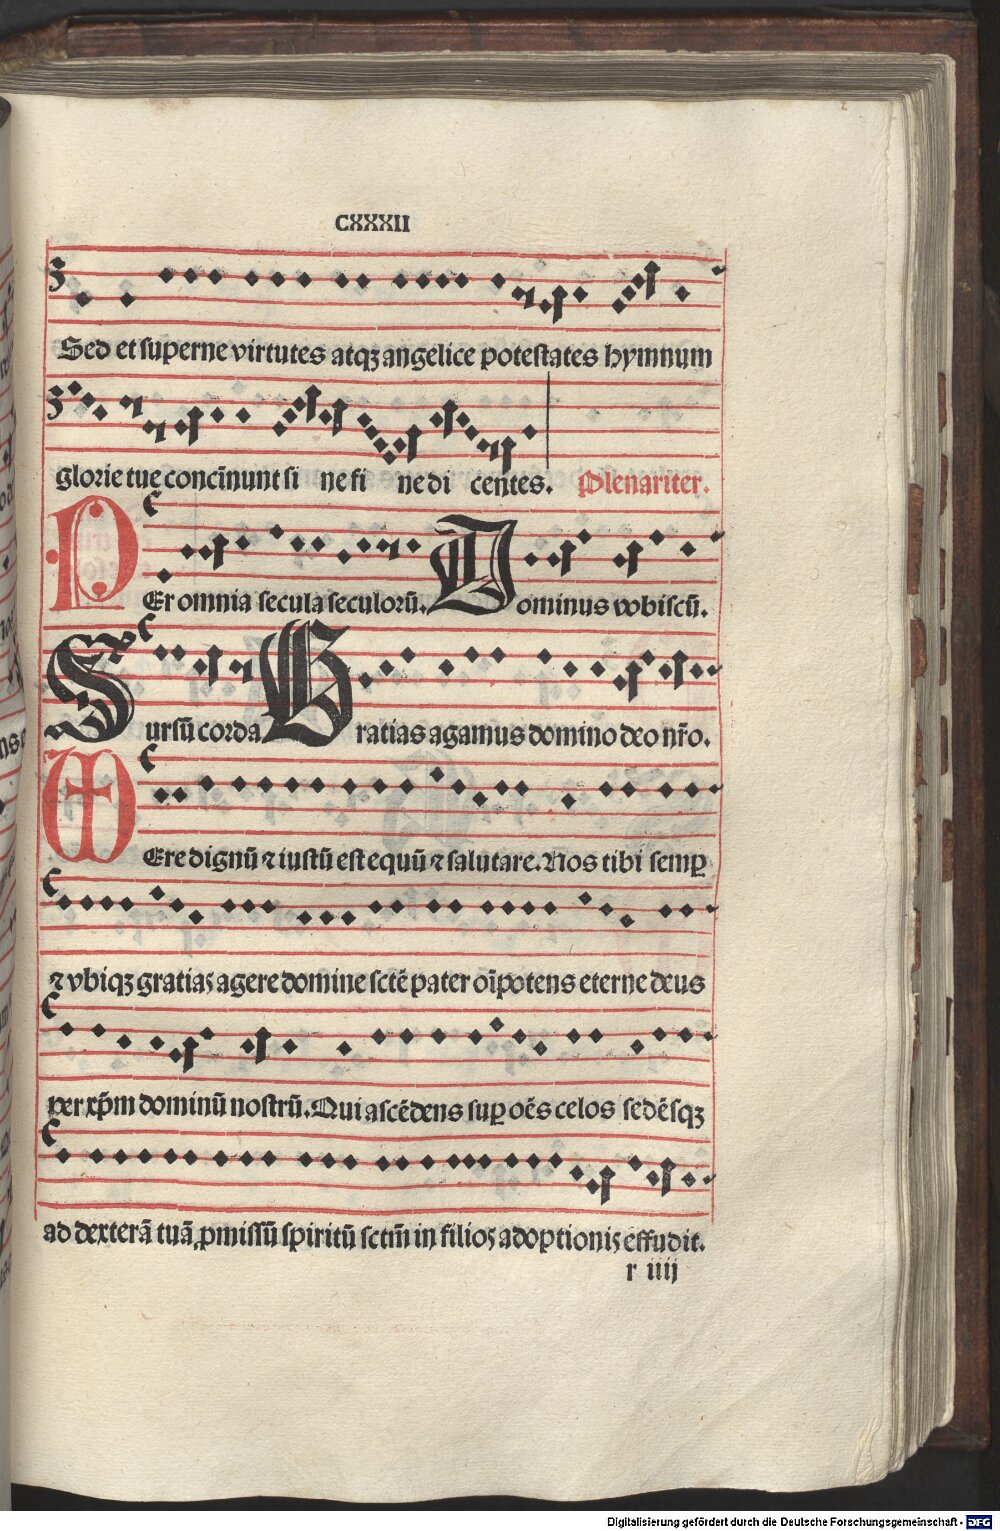 CXXXII
Sed et superne virtutes atqꝫ angelice potestates hymnum
glorie tue concīnunt si ne fi ne di centes. Plenariter.
PEr omnia secula seculorū. Dominus vobiscū.
Sursū corda Gratias agamus domino deo nr̄o.
VEre dignū ⁊ iustū est equū ⁊ salutare. Nos tibi semꝑ
⁊ vbiqꝫ gratias agere domine sctē pater oīpotens eterne deus
per xp̄m dominū nostrū. Qui ascēdens suꝑ oēs celos sedēsqꝫ
ad dexterā tuā ꝓmissū spiritū sctm̄ in filios adoptionis effudit.
r iiij
Digitalisierung gefördert durch die Deutsche Forschungsgemeinschaft - DFG